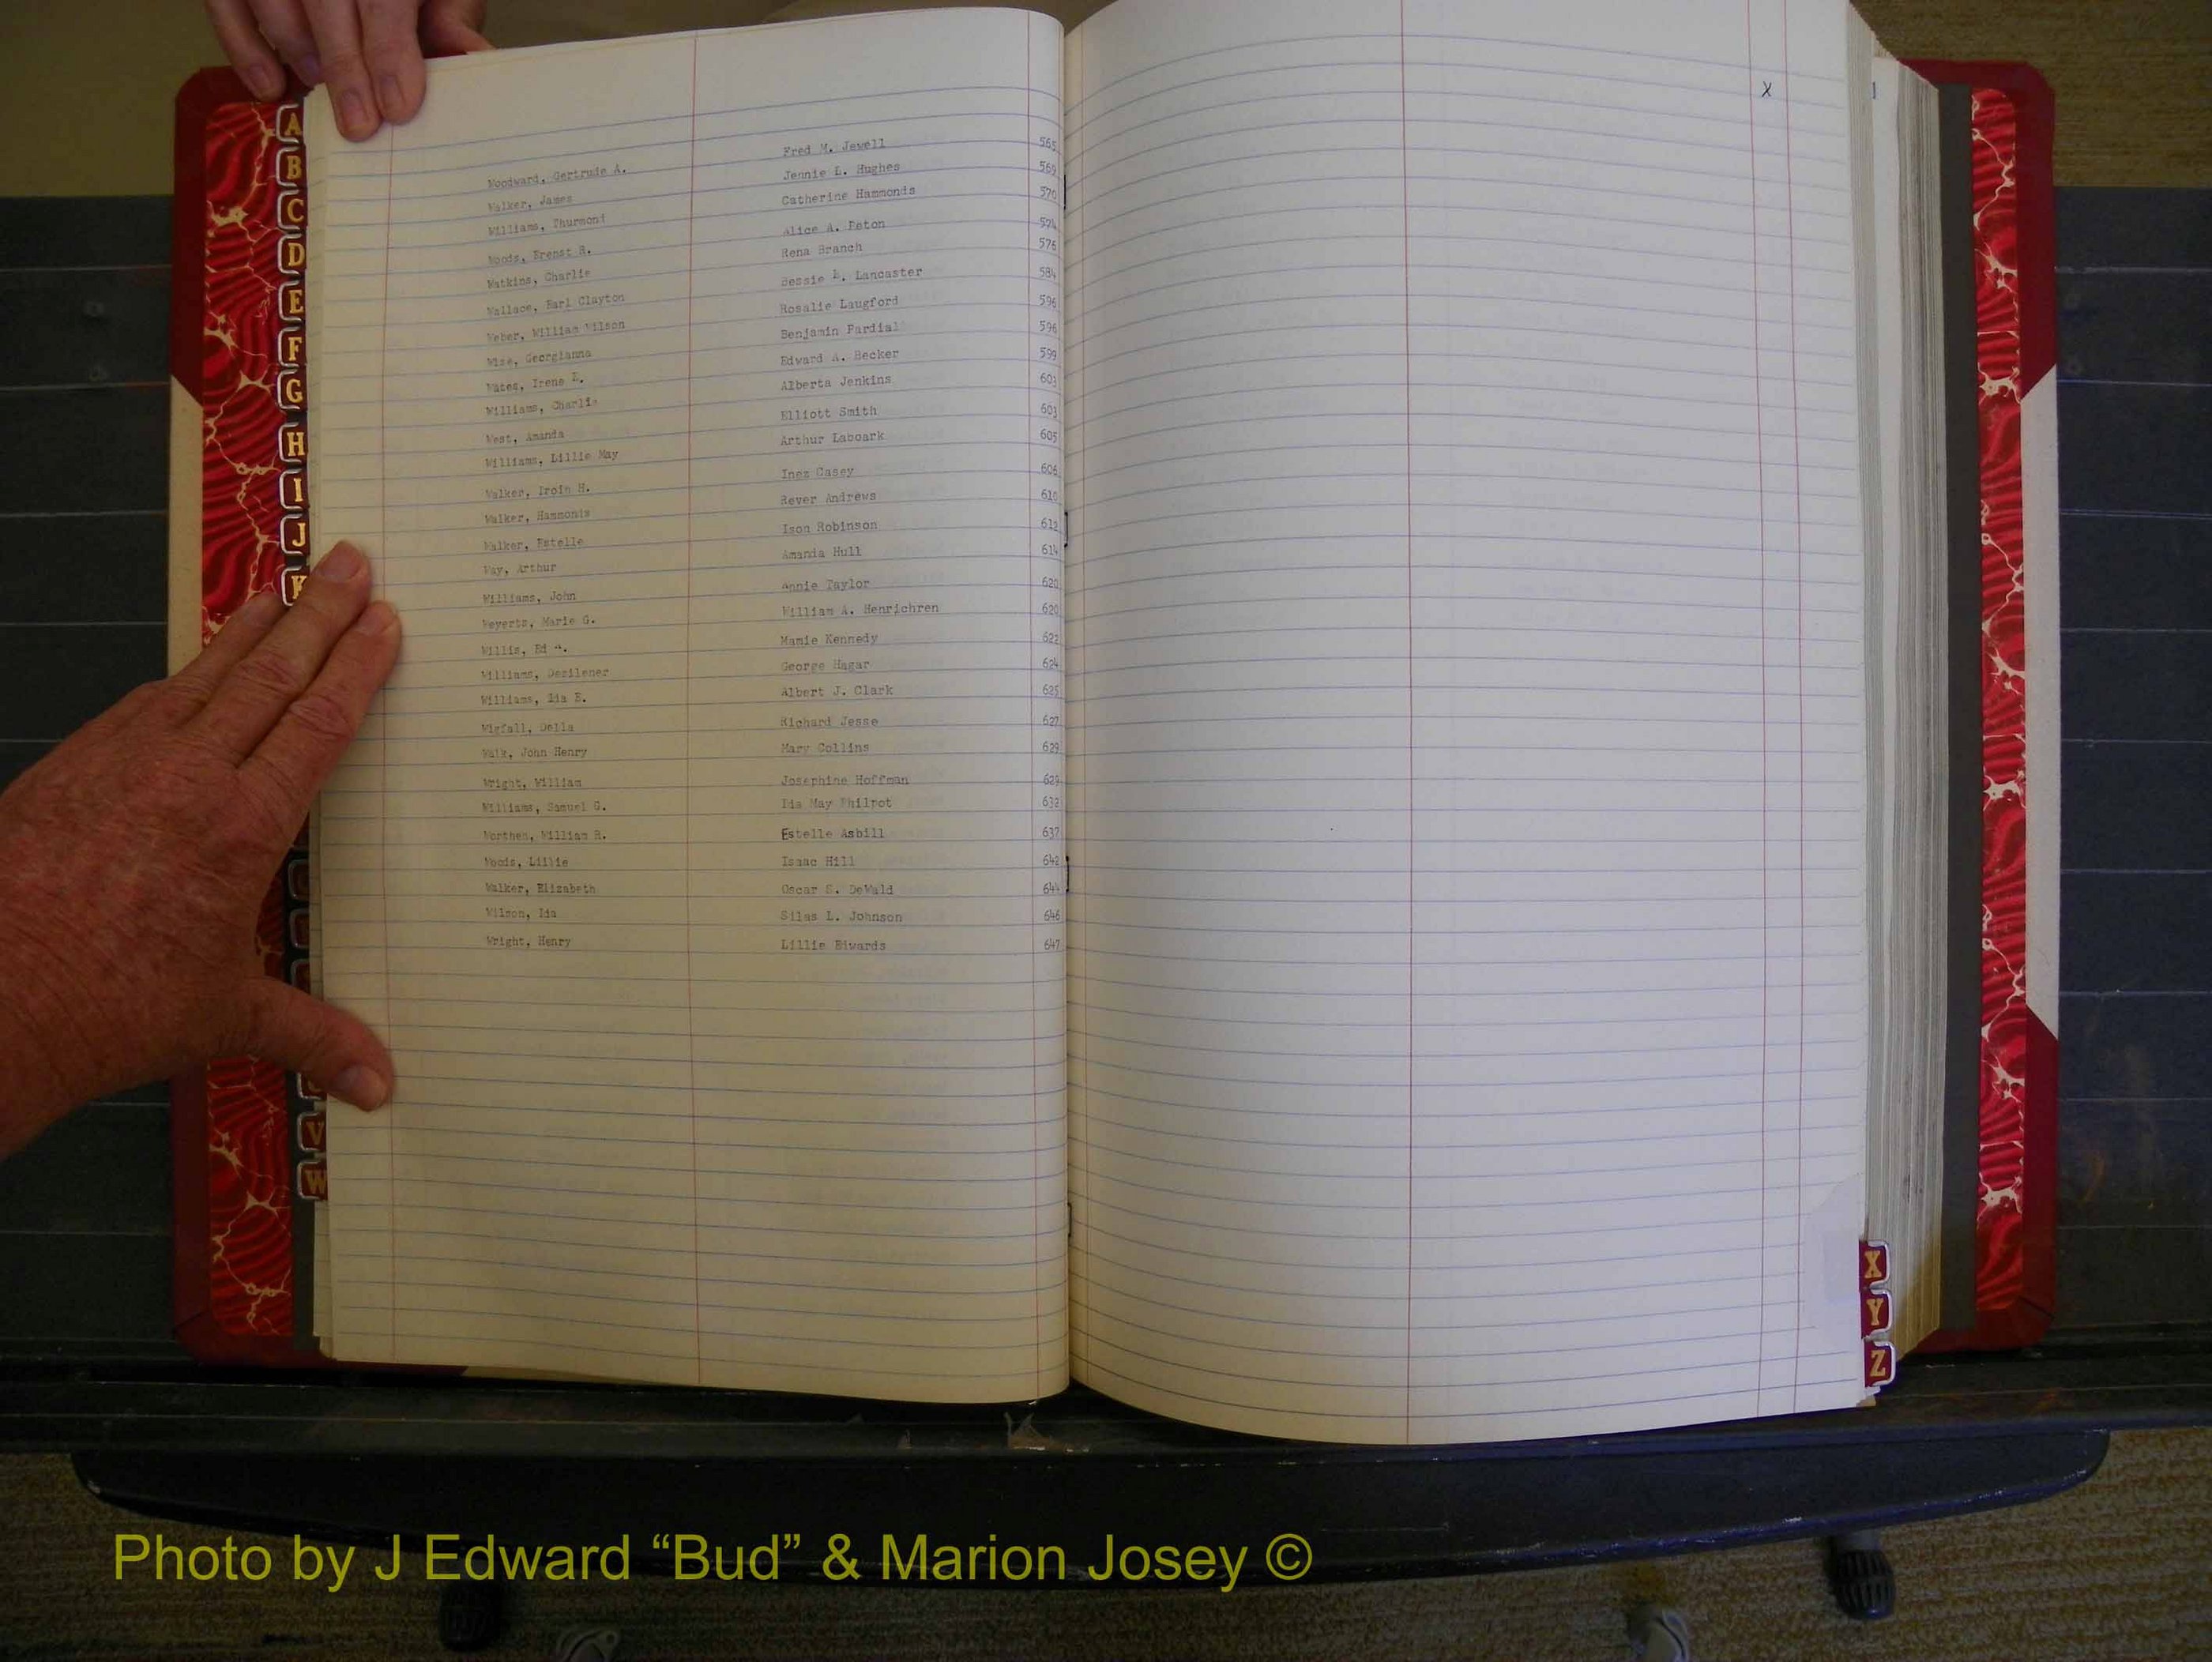 Woodward, Gertrude A. Fred M. Jewell 565
Walker, James Jennie L. Hughes 569
Williams, Thurmont Catherine Hammonds 570
Woods, Ernest R. Alice A. Peton 574
Watkins, Charlie Rena Branch 576
Wallace, Earl Clayton Bessie E. Lancaster 584
Weber, William Wilson Rosalie Laugford 596
Wise, Georgianna Benjamin Fardial 596
Wates, Irene E. Edward A. Becker 599
Williams, Charlie Alberta Jenkins 603
West, Amanda Elliott Smith 603
Williams, Lillie May Arthur Laboark 605
Walker, Iroin H. Inez Casey 606
Walker, Hammonds Rever Andrews 610
Walker, Estelle Ison Robinson 612
Way, Arthur Amanda Hull 614
Williams, John Annie Taylor 620
Weyerts, Marie G. William A. Henrichren 620
Willis, Ed A. Mamie Kennedy 622
Williams, Desilener George Hagar 624
Williams, Ida E. Albert J. Clark 625
Wigfall, Della Richard Jesse 627
Walk, John Henry Mary Collins 629
Wright, William Josephine Hoffman 629
Williams, Samuel G. Ida May Philpot 632
Worthen, William R. Estelle Asbill 637
Woods, Lillie Isaac Hill 642
Walker, Elizabeth Oscar S. DeWald 644
Wilson, Ida Silas L. Johnson 646
Wright, Henry Lillie Edwards 647
X
A
B
C
D
E
F
G
H
I
J
K
V
W
X
Y
Z
Photo by J Edward “Bud” & Marion Josey ©